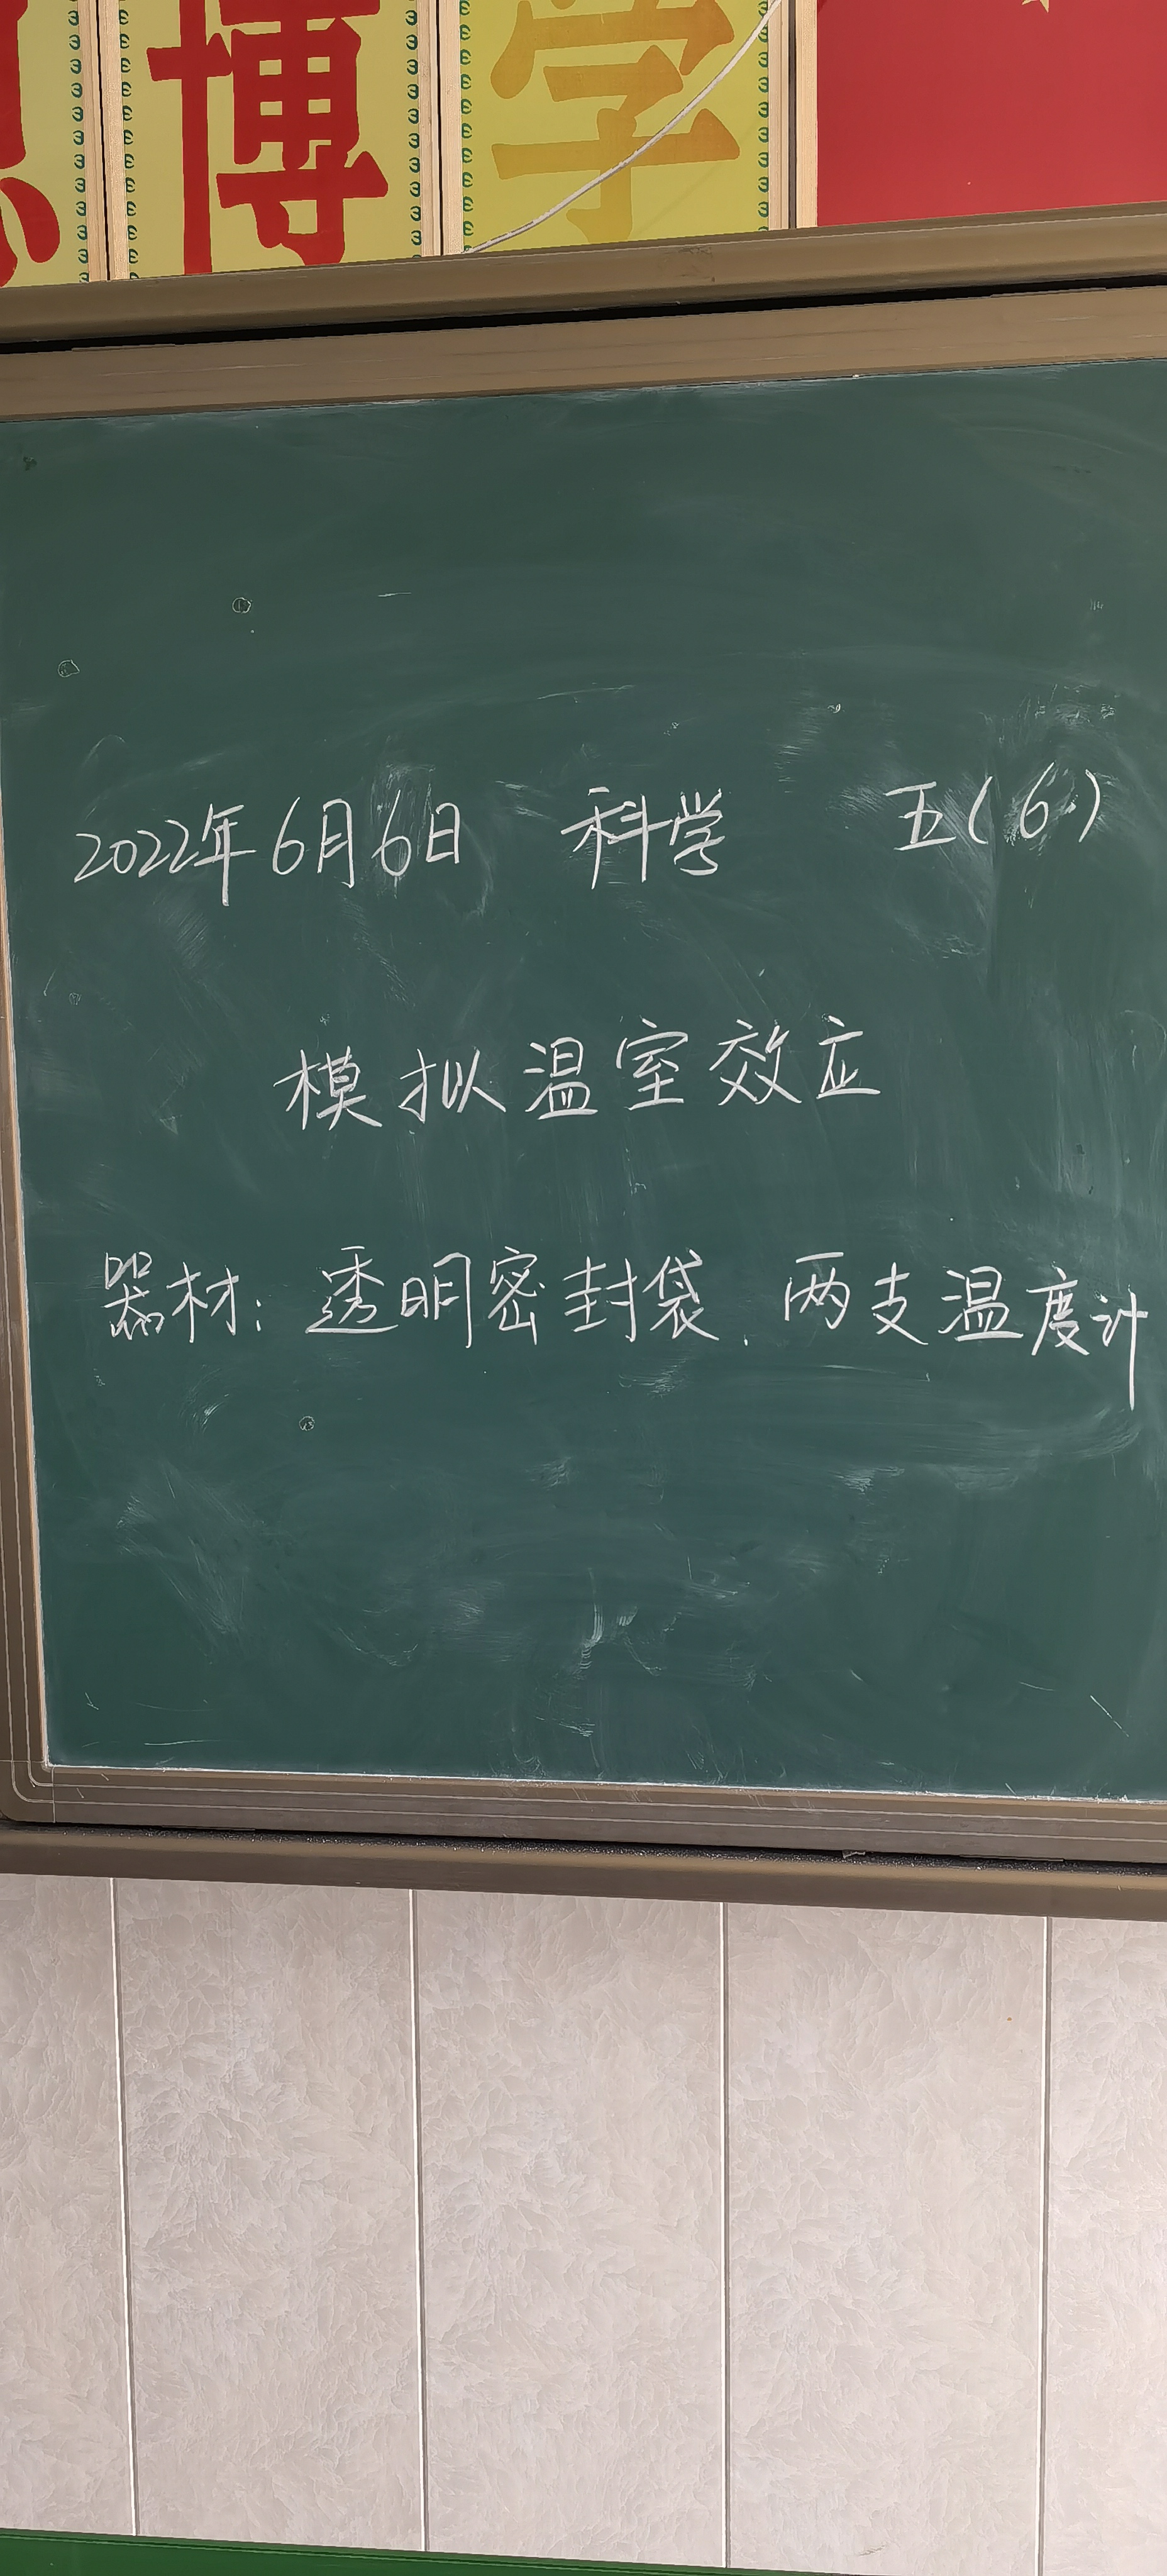 博学
2022年6月6日 科学 五(6)
模拟温室效应
器材：透明密封袋、两支温度计